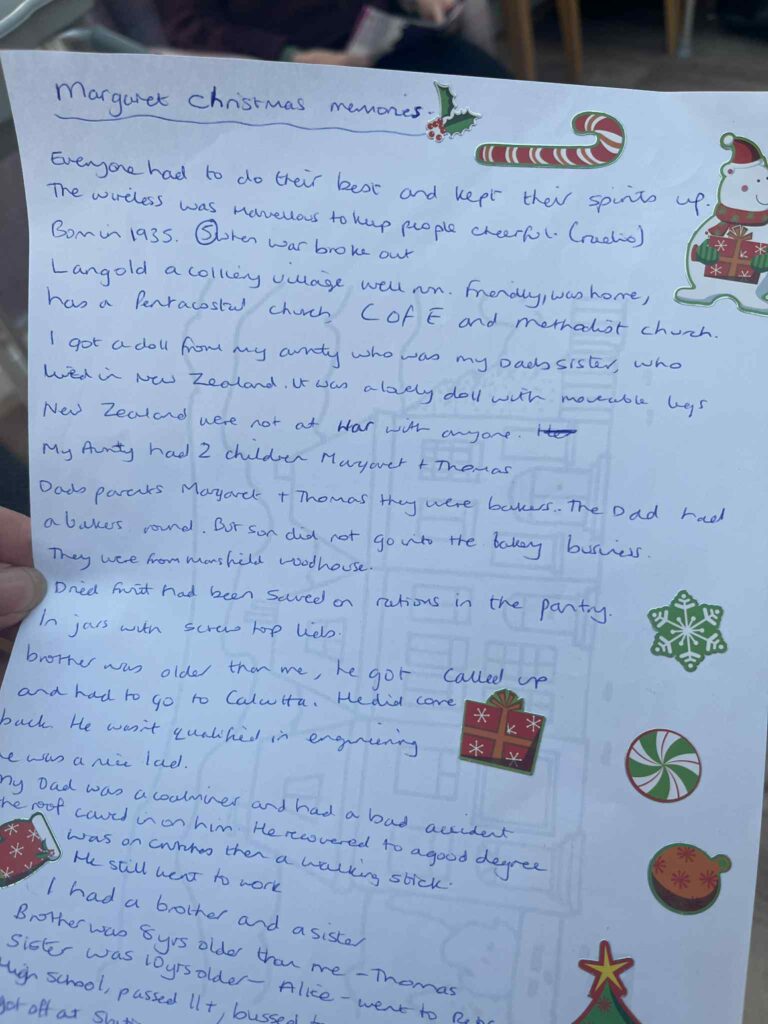 Margaret Christmas memories.
Everyone had to do their best and kept their spirits up.
The wireless was Marvellous to keep people cheerful. (radio)
Born in 1935. 5 when war broke out
Langold a colliery village well run. Friendly, was home,
has a Pentacostal church C of E and methodist church.
I got a doll from my aunty who was my Dads sister, who
lived in New Zealand. It was a lovely doll with moveable legs
New Zealand were not at war with anyone.
My Aunty had 2 children Margaret + Thomas
Dads parents Margaret + Thomas they were bakers.. The Dad had
a bakers round. But son did not go into the bakery business.
They were from mansfield woodhouse.
Dried fruit had been saved on rations in the pantry.
In jars with screw top lids.
brother was older than me, he got called up
and had to go to Calcutta. He did come
back. He wasn't qualified in engineering
he was a nice lad.
My Dad was a coalminer and had a bad accident
the roof caved in on him. He recovered to a good degree
was on crutches then a walking stick.
He still went to work
I had a brother and a sister
Brother was 8yrs older than me - Thomas
Sister was 10yrs older - Alice - went to
High school, passed 11+, bussed
got off at